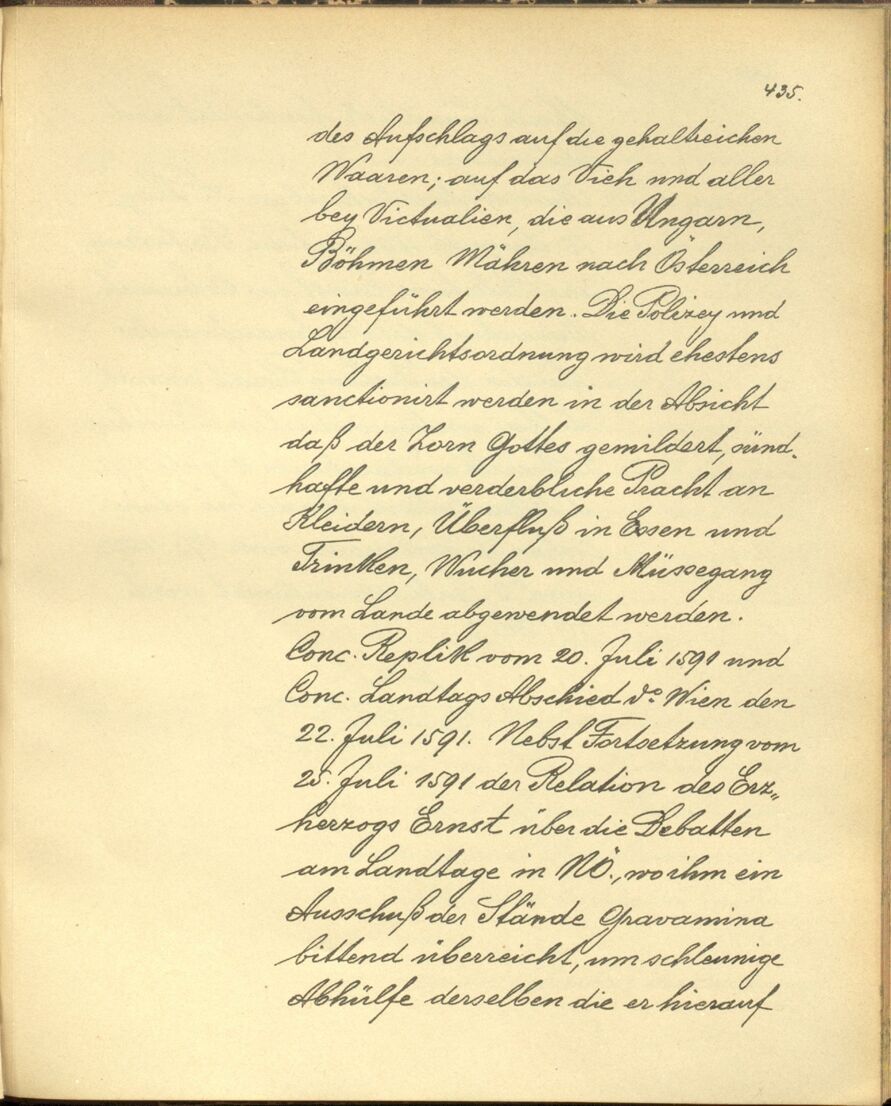 435.
des Aufschlags auf die gehaltreichen
Waaren; auf das Vieh und aller
bey Victualien, die aus Ungarn,
Böhmen Mähren nach Österreich
eingeführt werden. Die Polizey und
Landgerichtsordnung wird ehestens
sanctionirt werden in der Absicht
daß der Zorn Gottes gemildert, sünd-
hafte und verderbliche Pracht an
Kleidern, Überfluß in Essen und
Trinken, Wucher und Müssegang
vom Lande abgewendet werden.
Conc. Replik vom 20. Juli 1591 und
Conc. Landtags Abschied do Wien den
22. Juli 1591. Nebst Fortsetzung vom
25. Juli 1591 der Relation des Erz„
herzogs Ernst über die Debatten
am Landtage in NÖ., wo ihm ein
Ausschuß der Stände Gravamina
bittend überreicht, um schleunige
Abhülfe derselben die er hierauf